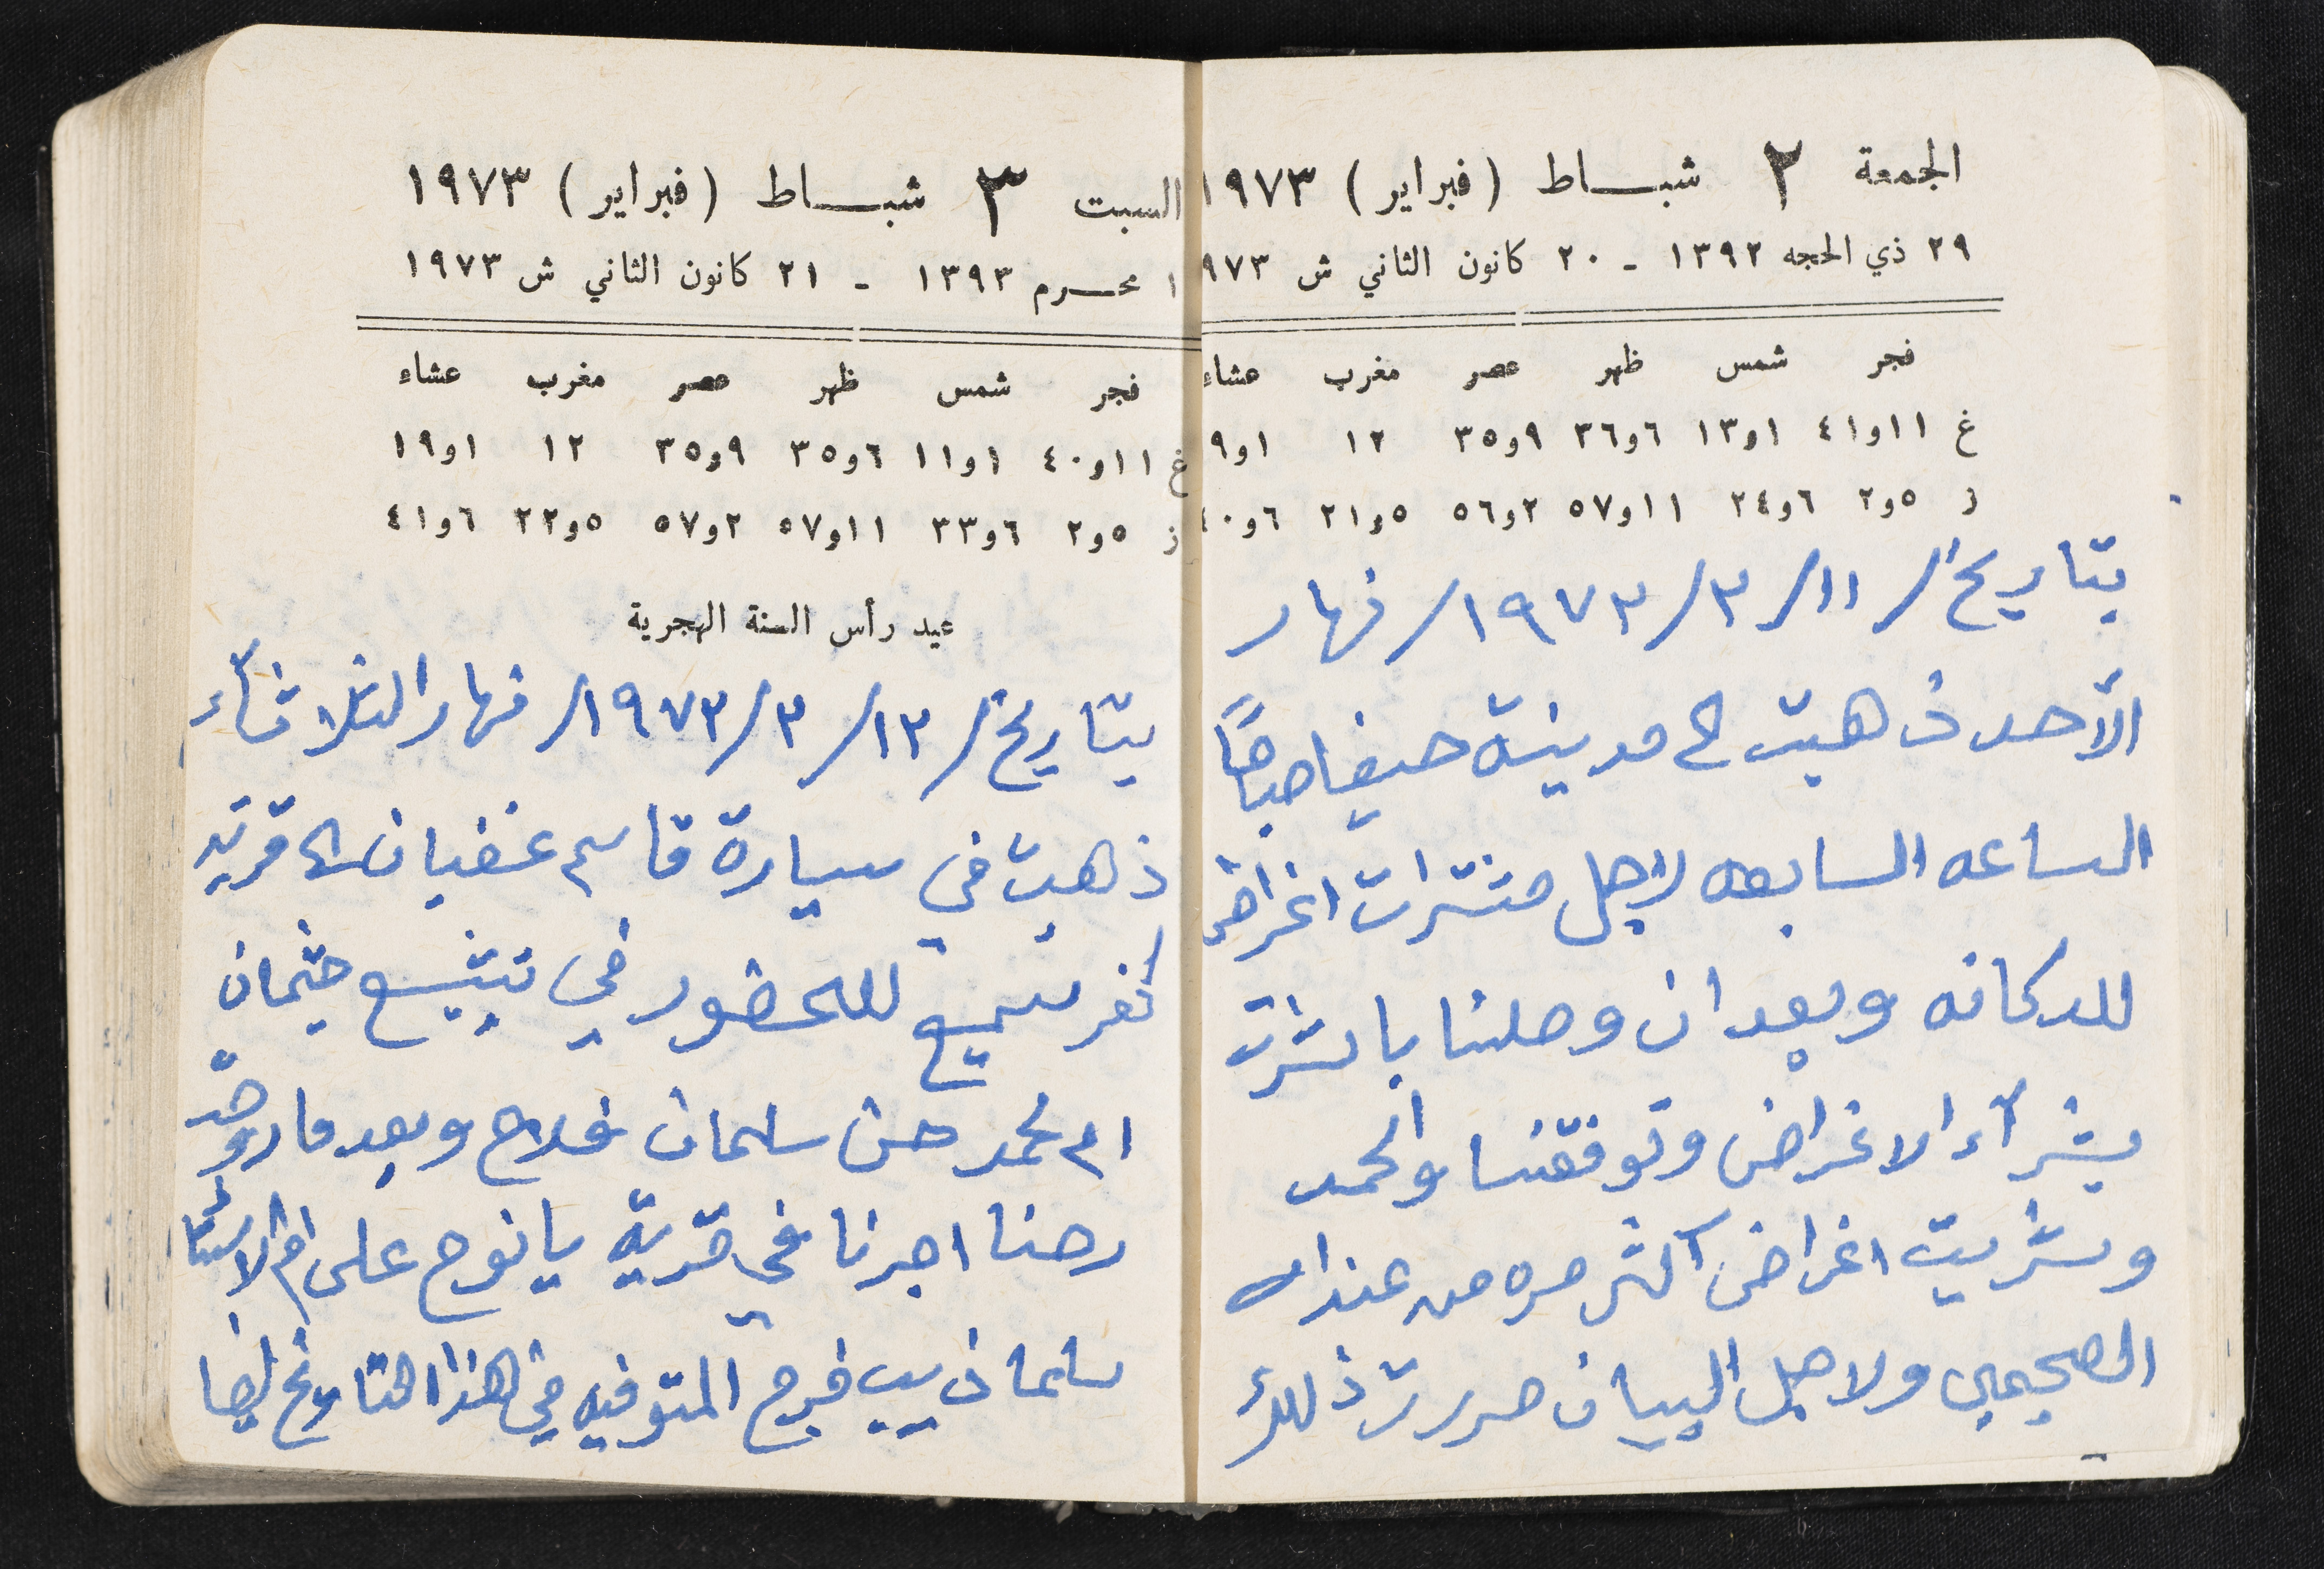 الجمعة ٢ شبــاط (فبراير) ١٩٧٣
٢٩ ذي الحجه ١٣٩٢ - ٢٠ كانون الثاني ش ٩٧٣
فجر شمس ظهر عصر مغرب عشاء
غ ١١و٤١ ١و١٣ ٦و٣٦ ٩و٣٥ ١٢ ١و٩
ز ٥و٢ ٦و٢٤ ١١و٥٧ ٢و٥٦ ٥و٢١ ٦و٤٠
بتاريخ/ ١١/ ٣/ ١٩٧٣/ نهار
الأحد ذهبت الى مدينة حيفا صباحاً
الساعه السابعه لاجل مشترات اغراض
للدكانه وبعد ان وصلنا باشرت
بشرآء الاغراض وتوفقنا والحمد
وشريت اغراض اكثر مره من عند
ولاجل البيان حررت ذلك
السبت ٣ شبــاط (فبراير) ١٩٧٣
١ محــرم ١٣٩٣ - ٢١ كانون الثاني ش ١٩٧٣
فجر شمس ظهر عصر مغرب عشاء
غ ١١و٤٠ ١و١١ ٦و٣٥ ٩و٣٥ ١٢ ١و١٩
ز ٥و٢ ٦و٣٣ ١١و٥٧ ٢و٥٧ ٥و٢٢ ٦و٤١
عيد رأس السنة الهجرية
بتاريخ/ ١٣/ ٣/ ١٩٧٣/ نهار الثلاثآء
ذهبت في سيارة قاسم غضبان الى قرية
كفر سميع للحضور في تشيع جثمان
ام محمد حسن سلمان فلاح وبعد ما روحنا
رحنا اجرنا في قرية يانوح على ام الاستا
سلمان ذيب فرج المتوفيه في هذا التاريخ ايضا